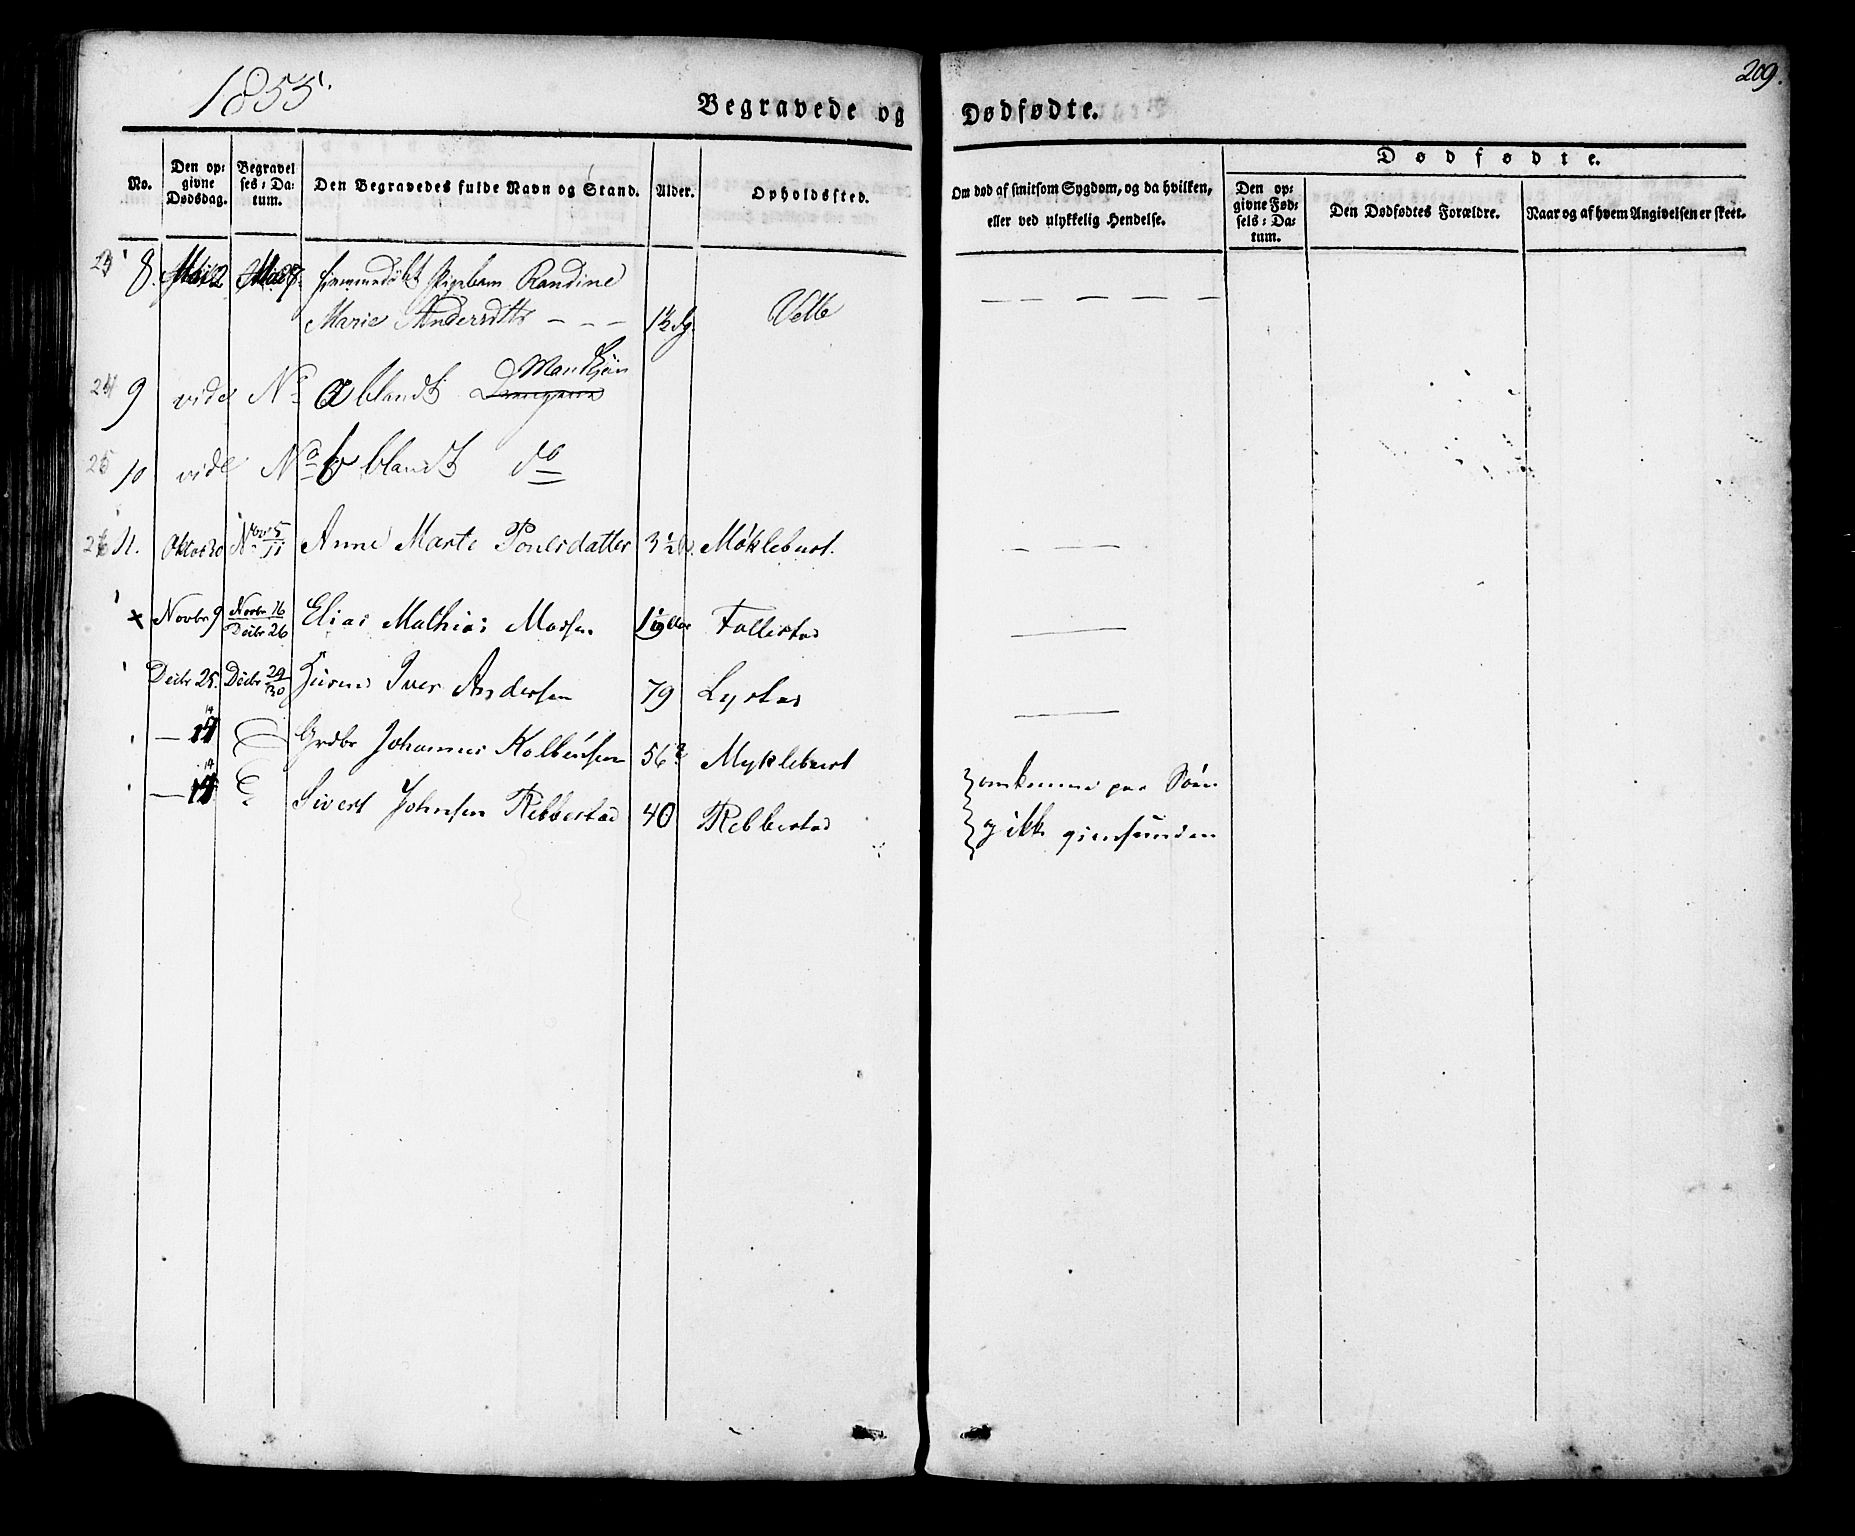 1855.
209.
Begravede og Dødfødte.
No.
Den op: givne Dødsdag.
Begravel ses: Da: tum.
Den Begravedes fulde Navn og Stand.
Alder.
Opholdssted.
Om død af smitsom Sygdom, og da hvilken, eller ved ulykkelig Hendelse.
Dødfødte.
Den op: givne Fød: sels: Da: tum.
Den Dødfødtes Forældre.
Naar og af hvem Angivelsen er skeet.
23 8. Mai 2 Mai hjemmedøbt Pigebarn Randine
Marie Andersdttr - - - 1½ dg. Velle — — — — —
24 9 vide No a blandt Mandkjøn
25 10 vide No b blandt do
26 11. Oktor 30 Novr 5/11 Anne Marte Poulsdatter 3½ Møklebust. — — —
x Novbr 9 Novbr 16 Decbr 26 Elias Mathias 1 Follestad ——
Decbr 25. Decbr 29/30 Iver Andersen 79 Lystad ——
— 14 Grdbr Johannes Kolbensen 56 Myklebust } omkomne paa Søen
— 14 Sivert Johnsen Rebbestad 40 Rebbestad } og ikke gjenfunden